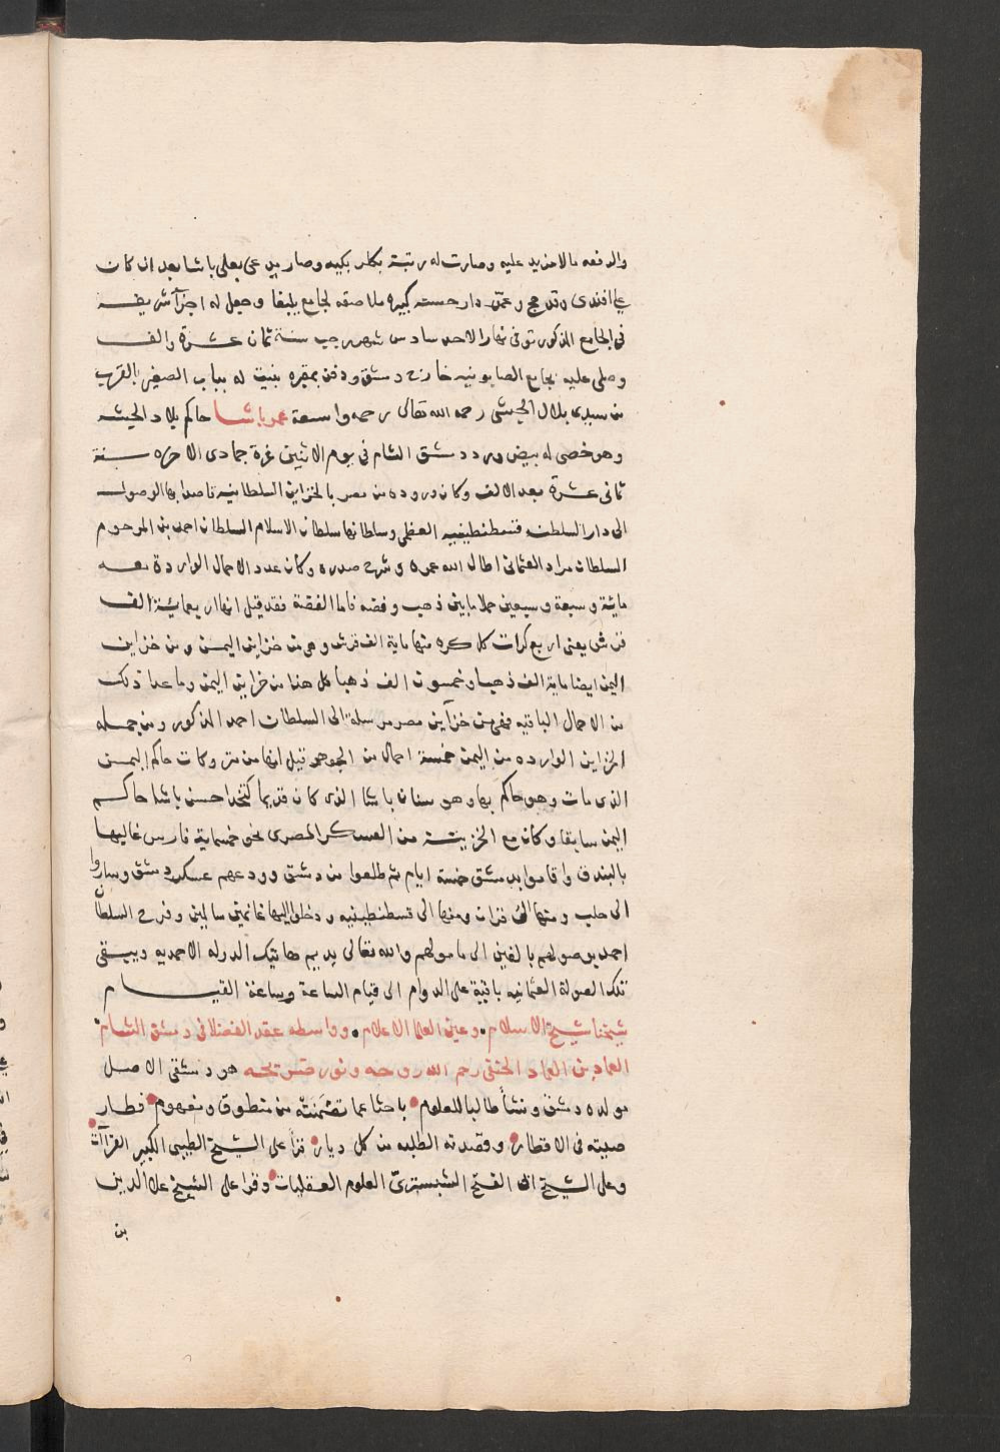 والرفعه مالامزيد عليه وصارت له رتبة بكلر بكيه وصار يدعى بعلى باشا بعد ان كان
على افندى وقد حج وعمّر دار حسنه كبيره ملاصقه لجامع يلبغا وجعل له اجزآ شريفه
فى الجامع المذكور توفى نهار الاحد سادس شهر رجب سنة ثمان عشرة والف
وصلى عليه بجامع الصابونيه خارج دمشق ودفن بمقبره بنيت له بباب الصغير بالقرب
من سيدى بلال الحبشى رحمه الله تعالى رحمه واسعة عمر باشا حاكم بلاد الحبشه
وهو خصى له بيض ورد دمشق الشام فى يوم الاثنين غرة جمادى الاخره سنة
ثانى عشرة بعد الالف وكان وروده من مصر بالخزاين السلطانيه قاصدا بها الوصول
الى دار السلطنه قسطنطينيه العظمى وسلطانها سلطان الاسلام السلطان احمد بن المرحوم
السلطان مراد العثمانى اطال الله عمره وشرح صدره وكان عدد الاحمال الواردة معه
مائية وسبعة وسبعين حملا مابين ذهب وفضه فاما الفضة فقد قيل انها اربعمائية الف
قرش يعنى اربع كرات كل كره منها ماية الف قرش وهى من خزاين اليمن ومن خزاين
اليمن ايضا ماية الف ذهب وخمسون الف ذهبا كل هذا من خزاين اليمن وما عدا ذلك
من الاحمال الباقيه فهى من خزآين مصر مرسلة الى السلطان احمد المذكور ومن جمله
الخزاين الوارده من اليمن خمسة احمال من الجوهر قيل انها من متروكات حاكم اليمن
الذى مات وهو حاكم بها وهو سنان باشا الذى كان قديما كتخدا حسن باشا حاكم
اليمن سابقا وكان مع الخزينة من العسكر المصرى نحو خمسماية فارس غاليها
بالبندق واقاموا بدمشق خمسة ايام ثم طلعوا من دمشق وودعهم عسكر دمشق وساروا
الى حلب ومنها الى فرات ومنها الى قسطنطينيه ودخلوا اليها غانمين سالمين وفرح السلطان
احمد بوصولهم بالغين الى مامولهم والله تعالى يديم هاتيك الدوله الاحمديه ويبقى
تلك الصولة العثمانيه باقية على الدوام الى قيام الساعة وساعة القيام
شيخنا شيخ الاسلام. وعين العلما الاعلام. وواسطه عقد الفضلا فى دمشق الشام
العماد بن العماد الحنفى رحم الله روحه ونور ضريحه هو دمشقى الاصل
مولده دمشق ونشأ طالبا للعلوم باحثا عما تضمنته من منطوق ومفهوم فطار
صيته فى الاقطار وقصدته الطلبه من كل ديار قرأ على الشيخ الطيبى الكبير القراآة
وعلى الشيخ ابى الفتح الشبسترى العلوم العقليات وقرا على الشيخ علا الدين
بن